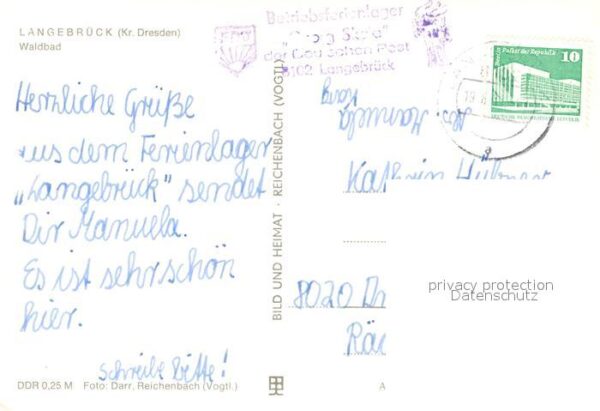 LANGEBRÜCK (Kr. Dresden)
Waldbad
Betriebsferienlager
der Deutschen Post
8102 Langebrück
Palast der Republik
10
DEUTSCHE DEMOKRATISCHE REPUBLIK
Herzliche Grüße
aus dem Ferienlager
„Langebrück" sendet
Dir Manuela.
Es ist sehr schön
hier.
schreibe bitte!
BILD UND HEIMAT · REICHENBACH (VOGTL)
Manuela
Kathrin Hübner
8020
privacy protection
Datenschutz
DDR 0,25 M Foto: Darr, Reichenbach (Vogtl.)
A